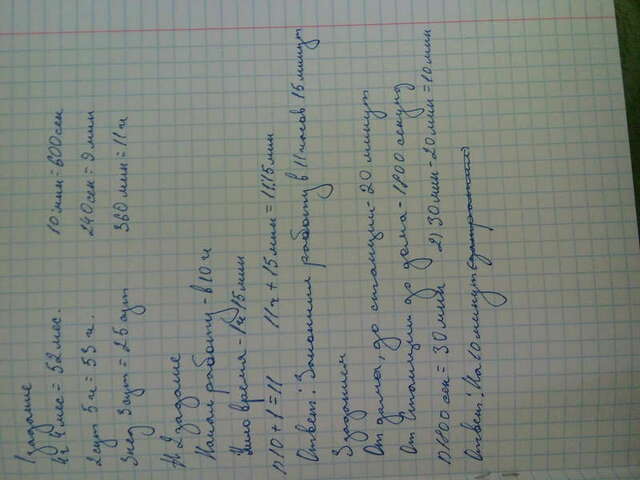 1 задание
4г 4мес = 52мес. 10мин=600сек
2сут 5ч = 53 ч. 240сек = 9мин
3нед 3сут = 25сут 360мин = 11ч
№ 2задание
Начал работу - в 10 ч
Шло время - 1ч 15мин
1) 10 + 1 = 11 11ч + 15мин = 11.15мин
Ответ: Закончил работу в 11 часов 15 минут
3 заданием
От дома, до станции - 20 минут
От Станции до дома - 1800 секунд
1) 1800 сек = 30 мин 2) 30мин - 20мин = 10мин
Ответ: На 10 минут